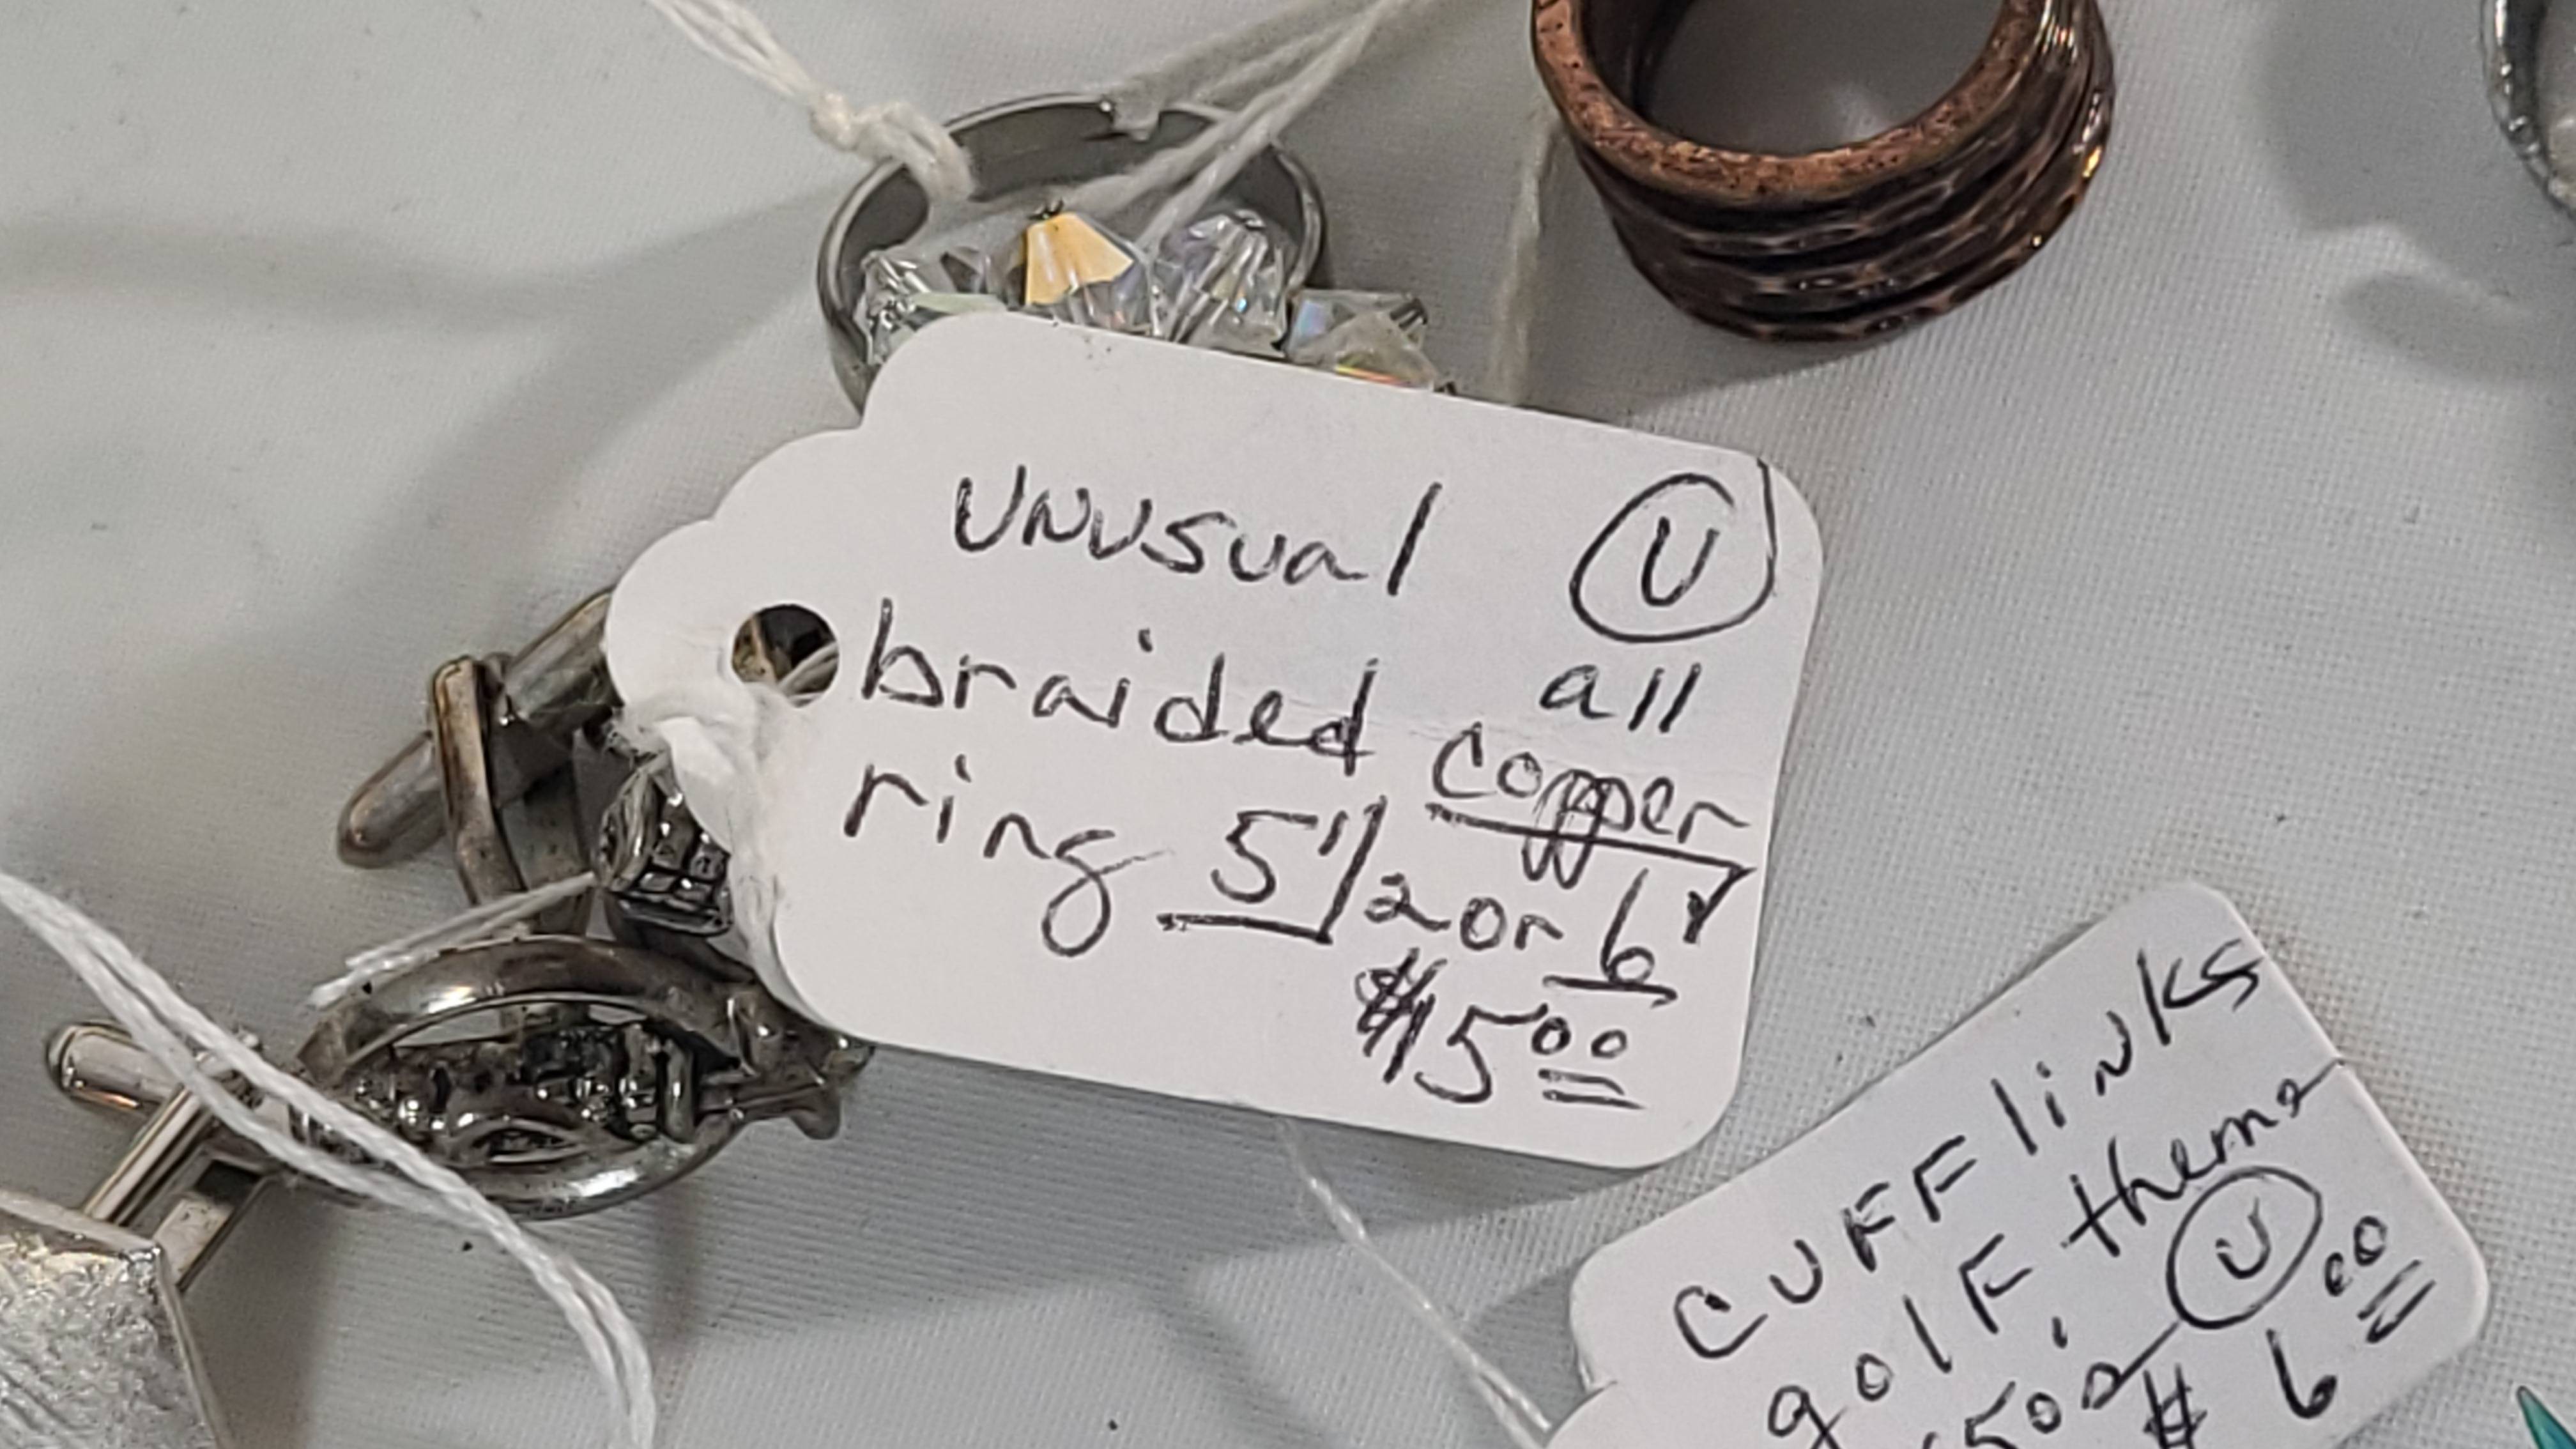 Unusual U
braided all
copper
ring 5 1/2 or 6
$5.00
CUFF links
golF theme
U
$6.00